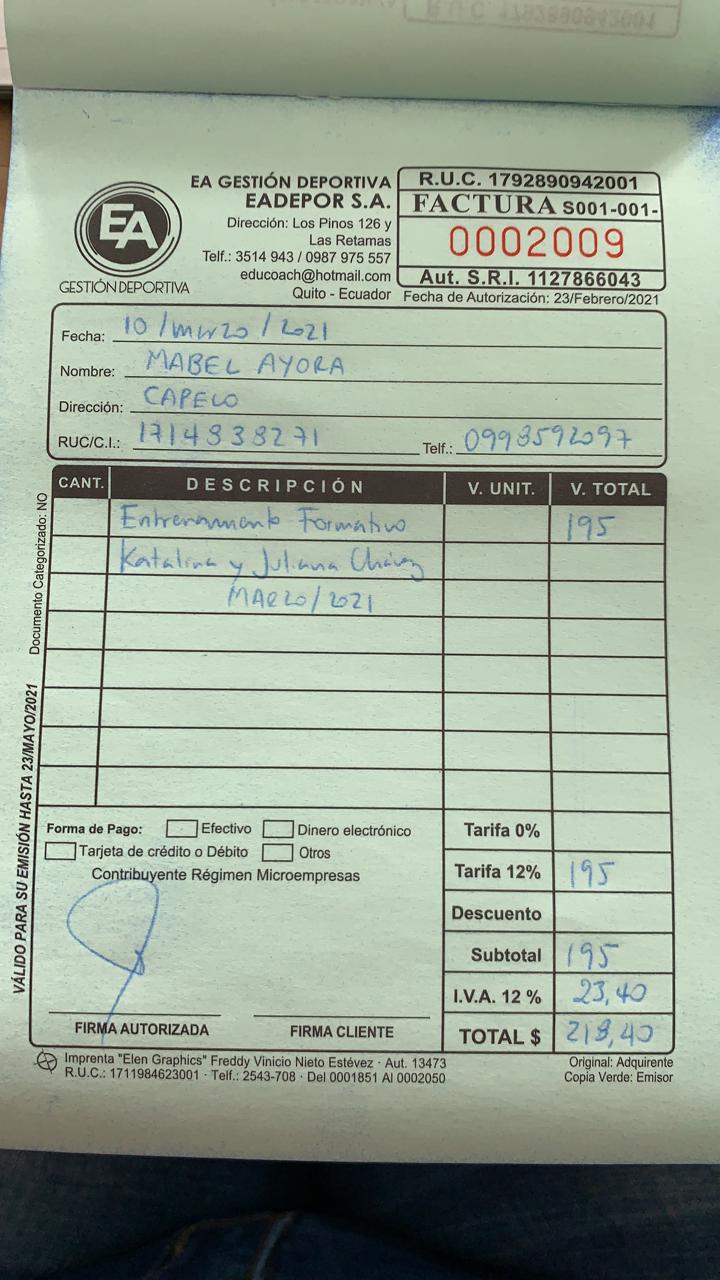 R.U.C. 1792890942001
EA
GESTIÓN DEPORTIVA
EA GESTIÓN DEPORTIVA
EADEPOR S.A.
Dirección: Los Pinos 126 y
Las Retamas
Telf.: 3514 943 / 0987 975 557
educoach@hotmail.com
Quito - Ecuador
R.U.C. 1792890942001
FACTURA S001-001-
0002009
Aut. S.R.I. 1127866043
Fecha de Autorización: 23/Febrero/2021
Fecha: 10/marzo/2021
Nombre: MABEL AYORA
Dirección: CAPELO
RUC/C.I.: 1714838271 Telf.: 0998592097
CANT. DESCRIPCIÓN V. UNIT. V. TOTAL
Entrenamiento Formativo 195
Katalina y Juliana Chávez
MARZO/2021
Documento Categorizado: NO
VÁLIDO PARA SU EMISIÓN HASTA 23/MAYO/2021
Forma de Pago: Efectivo Dinero electrónico
Tarjeta de crédito o Débito Otros
Contribuyente Régimen Microempresas
FIRMA AUTORIZADA FIRMA CLIENTE
Tarifa 0%
Tarifa 12% 195
Descuento
Subtotal 195
I.V.A. 12 % 23,40
TOTAL $ 218,40
Imprenta "Elen Graphics" Freddy Vinicio Nieto Estévez · Aut. 13473
R.U.C.: 1711984623001 · Telf.: 2543-708 · Del 0001851 Al 0002050
Original: Adquirente
Copia Verde: Emisor